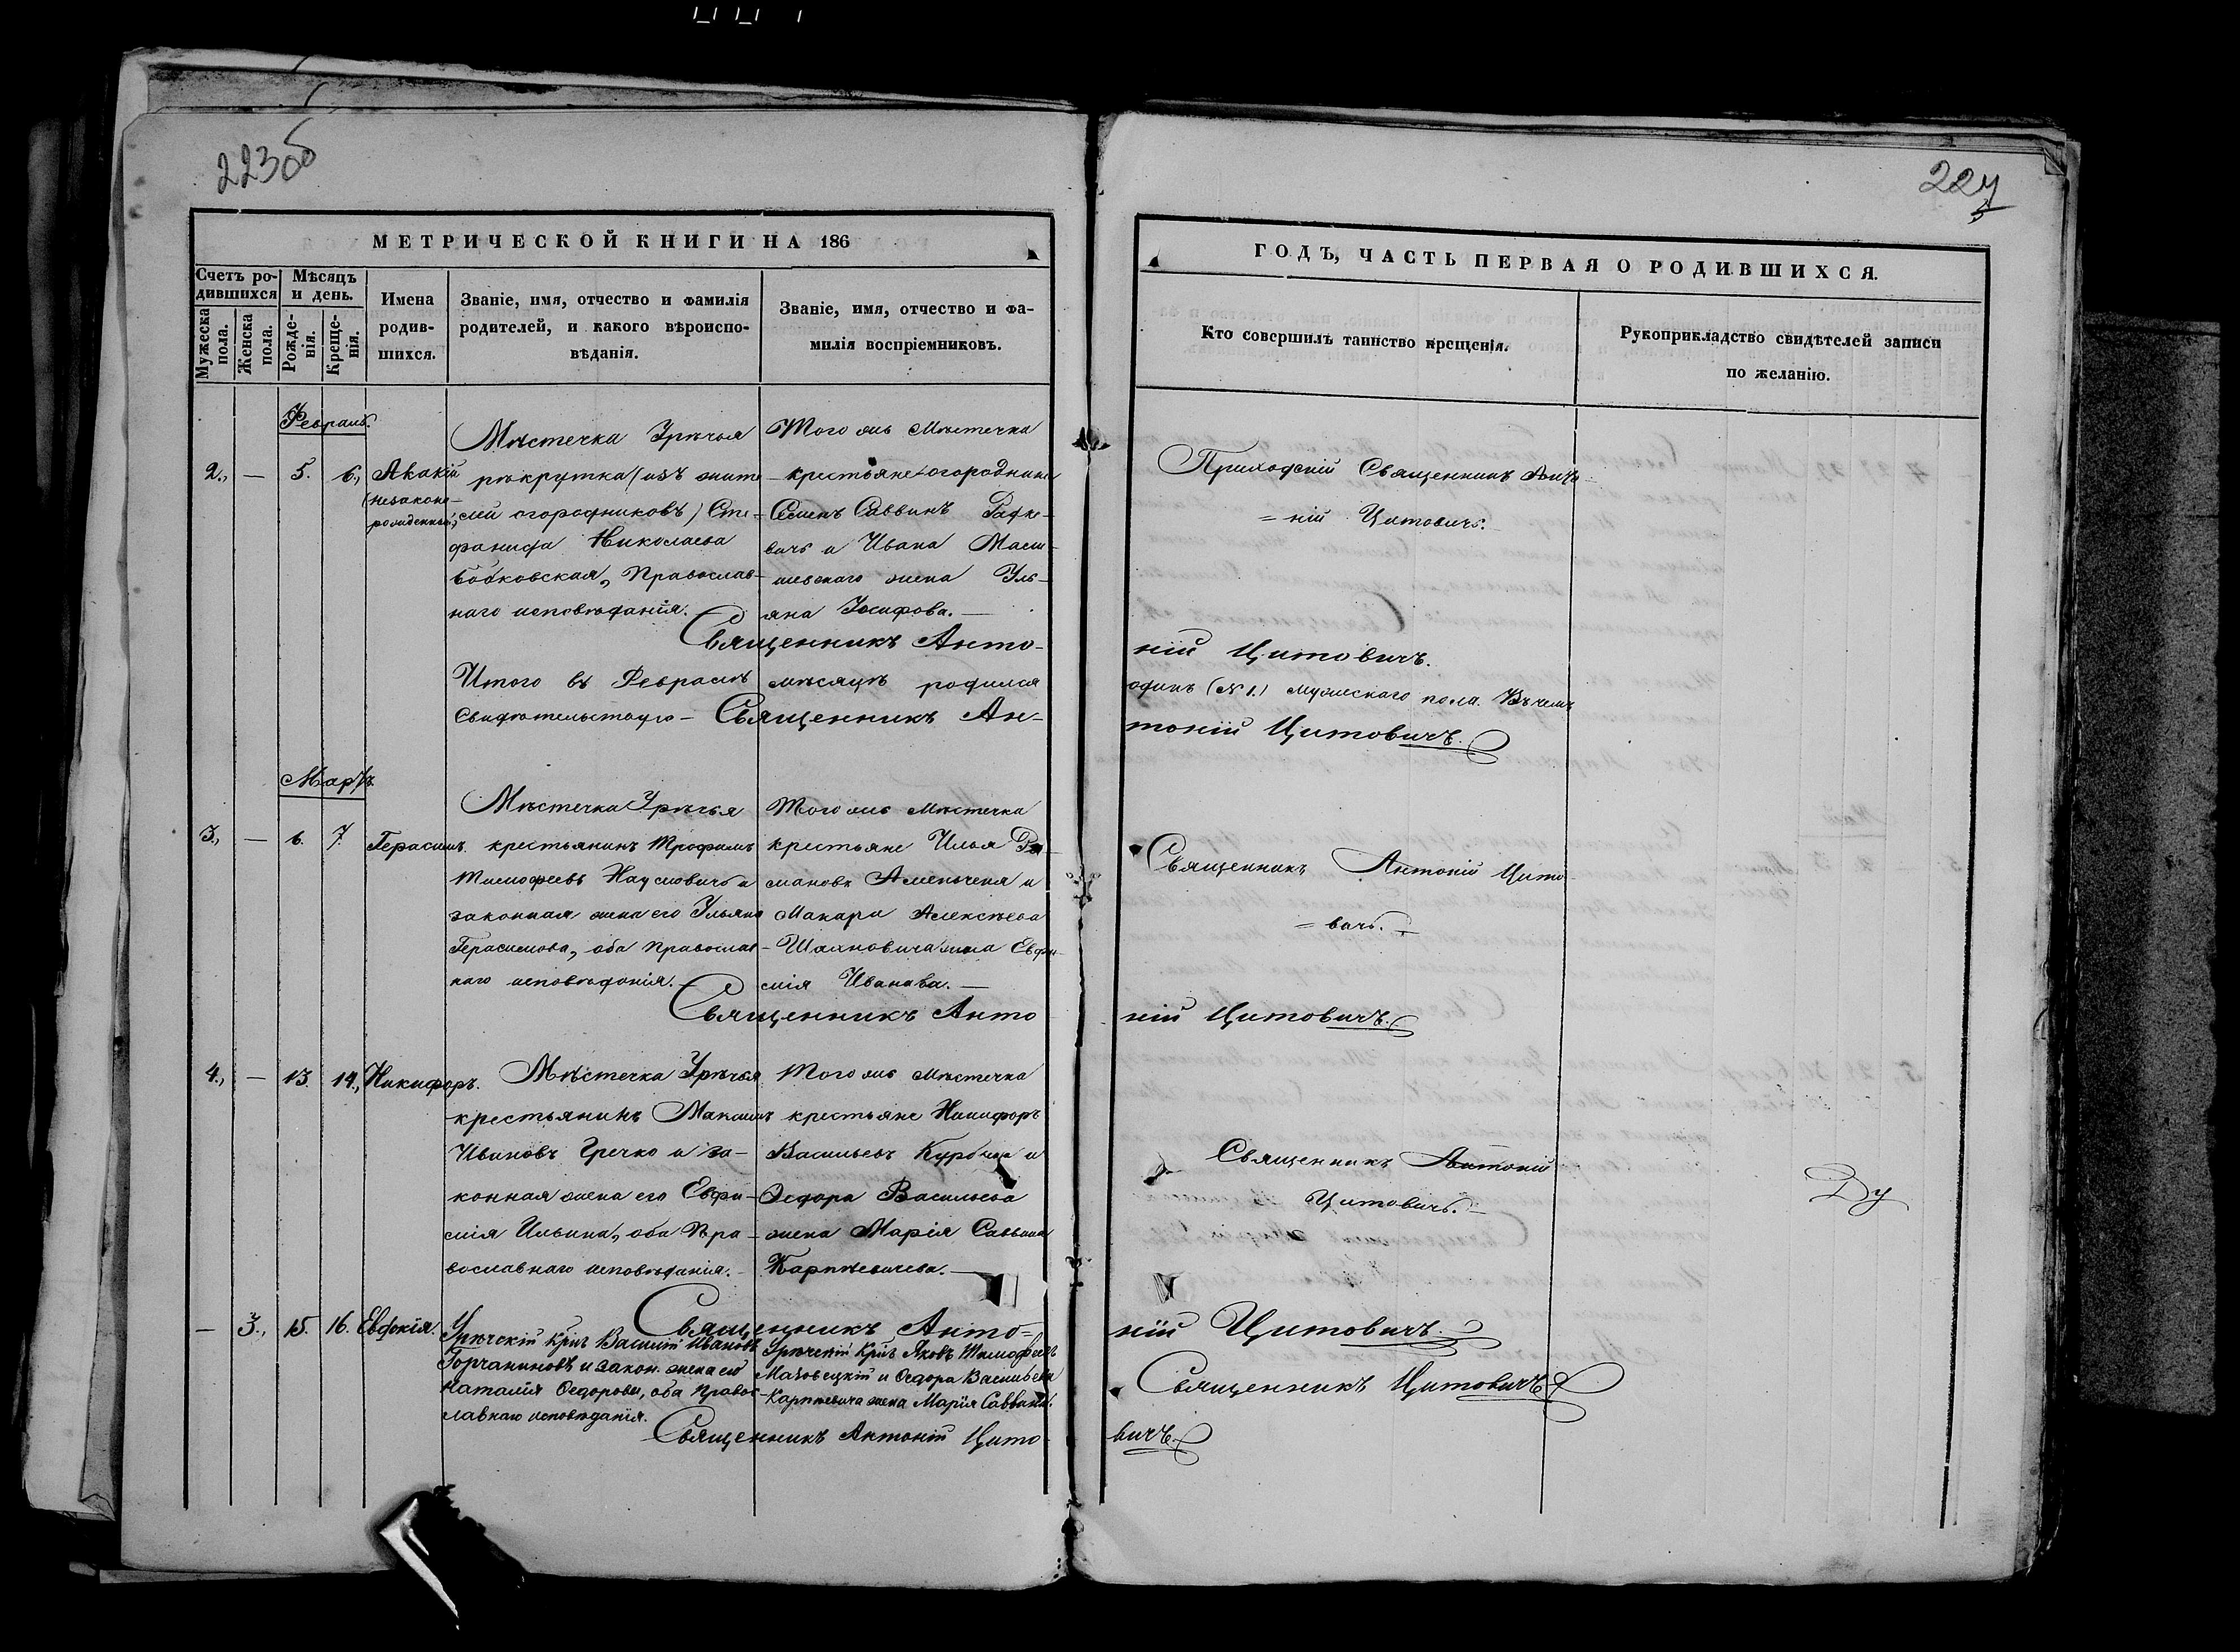 223об
224
МЕТРИЧЕСКОЙ КНИГИ НА 186
ГОДЪ, ЧАСТЬ ПЕРВАЯ О РОДИВШИХСЯ.
Счетъ ро-
дившихся
Мѣсяцъ
и день.
Мужеска
пола.
Женска
пола.
Рожде-
нія.
Креще-
нія.
Имена
родив-
шихся.
Званіе, имя, отчество и фамилія
родителей, и какого вѣроиспо-
вѣданія.
Званіе, имя, отчество и фа-
милія воспріемниковъ.
Кто совершилъ таинство крещенія.
Рукоприкладство свидѣтелей записи
по желанію.
Февраль
2., — 5. 6., Акакій
(незаконо-
рожденный)
Мѣстечка Урѣчья
рекрутка (изъ жите-
лей огородниковъ) Сте-
фанида Николаева
Бобковская, Православ-
наго исповѣданія.
Того же Мѣстечка
крестьяне огородники
Семенъ Саввинъ
вичъ и Ивана
жена Уль-
яна Іосифова. —
Приходскій Священникъ Анто-
= ній Цитовичъ.
Священникъ Анто-
ній Цитовичъ.
Итого въ Февралѣ мѣсяцѣ родился
одинъ (№ 1.) мужескаго пола. Въ чемъ
Свидѣтельствую — Священникъ Ан-
тоній Цитовичъ.
Мартъ
3., — 6. 7. Герасимъ.
Мѣстечка Урѣчья
крестьянинъ Трофимъ
Тимофеевъ Наумовичъ и
законная жена его Ульяна
Герасимова, оба Православ-
наго исповѣданія. —
Того же Мѣстечка
крестьяне Илья Ро-
мановъ Аменьченя и
Макара Алексѣева
Шахновича жена Евфи-
мія Иванова. —
Священникъ Антоній Цито-
= вичъ. —
Священникъ Анто
ній Цитовичъ.
4., — 13. 14., Никифоръ.
Мѣстечка Урѣчья
крестьянинъ Максимъ
Ивановъ Гречко и за-
конная жена его Евфи-
мія Ильина, оба Пра-
вославнаго исповѣданія. —
Того же Мѣстечка
крестьяне Никифоръ
Васильевъ и
Ѳедора Васильева
жена Марія Саввина
Карпѣевичева. —
Священникъ Антоній
Цитовичъ. —
Ду
Священникъ Анто=
ній Цитовичъ.
— 3., 15. 16. Евдокія.
Урѣчскій Кр-нъ Василій Ивановъ
Горчаниновъ и закон. жена его
Наталія Ѳедорова, оба Правос-
лавнаго исповѣданія.
Урѣчскій Кр-нъ Яковъ Тимофеевъ
и Ѳедора Васильева
Карпѣевича жена Марія Саввина.
Священникъ Цитовичъ
Священникъ Антоній Цито-
вичъ.